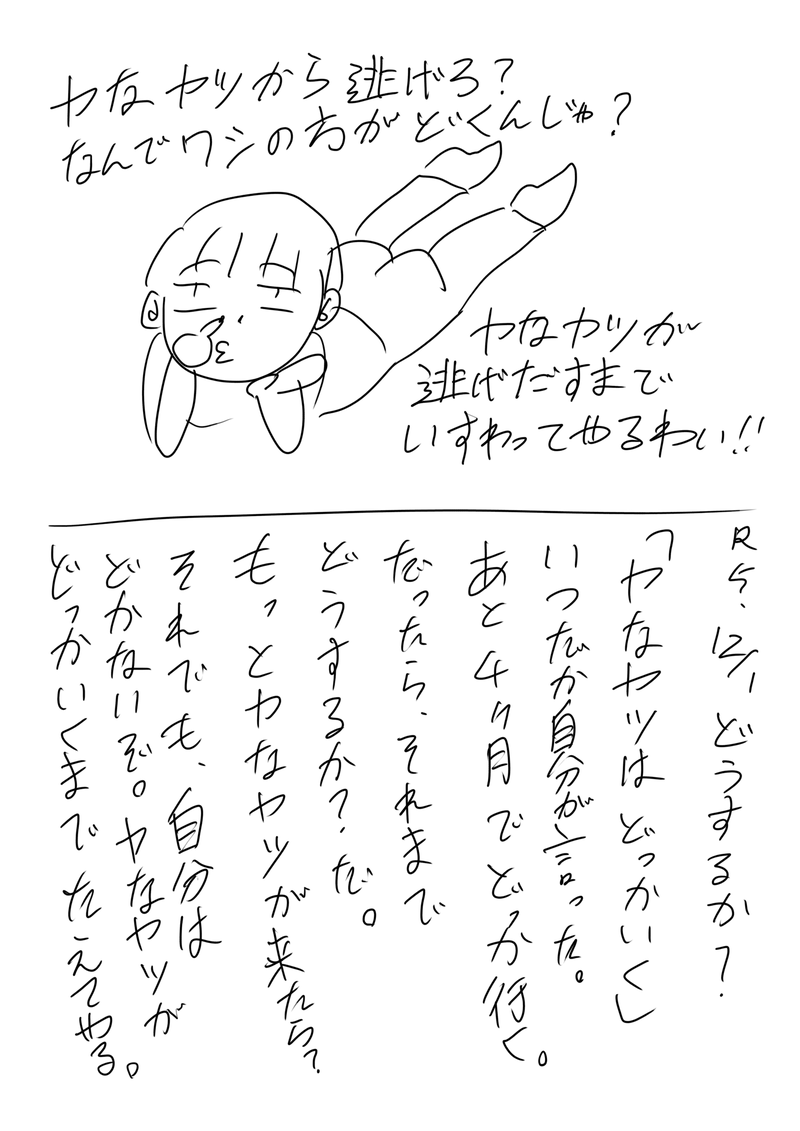 ヤなヤツから逃げろ？
なんでワシの方がどくんじゃ？
ヤなヤツが
逃げだすまで
いすわってやるわい!!
R5、12/1 どうするか？
「ヤなヤツはどっかいく」
いつだか自分が言った。
あと4ヶ月でどっか行く。
だったら、それまで
どうするか？、だ。
もっとヤなヤツが来たら？
それでも、自分は
どかないぞ。ヤなヤツが
どっかいくまでたえてやる。